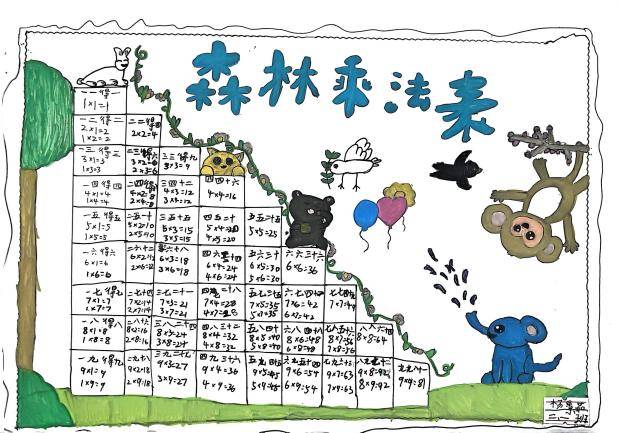 森林乘法表
一一得一
1×1=1
一二得二 二二得四
2×1=2 2×2=4
1×2=2
一三得三 二三得六 三三得九
3×1=3 3×2=6 3×3=9
1×3=3 2×3=6
一四得四 二四得八 三四十二 四四十六
4×1=4 4×2=8 4×3=12 4×4=16
1×4=4 2×4=8 3×4=12
一五得五 二五一十 三五十五 四五二十 五五二五
5×1=5 5×2=10 5×3=15 5×4=20 5×5=25
1×5=5 2×5=10 3×5=15 4×5=20
一六得六 二六十二 三六十八 五六三十 六六三六
6×1=6 6×2=12 6×3=18 6×4=24 6×5=30 6×6=36
1×6=6 2×6=12 3×6=18 4×6=24 5×6=30
一七得七 二七十四 三七二一 五七三五 六七四二
7×1=7 7×2=14 7×3=21 7×4=28 7×5=35 7×6=42 7×7=49
1×7=7 2×7=14 3×7=21 4×7=28 5×7=35 6×7=42
一八得八 二八十六 三八二四 四八三二 五八四十 六八四八 七八五六 八八六四
8×1=8 8×2=16 8×3=24 8×4=32 8×5=40 8×6=48 8×7=56 8×8=64
1×8=8 2×8=16 3×8=24 4×8=32 5×8=40 6×8=48 7×8=56
一九得九 二九十八 三九二七 四九三六 五九四五 六九五四 七九六三 八九七二 九九八一
9×1=9 9×2=18 9×3=27 9×4=36 9×5=45 9×6=54 9×7=63 9×9=81
1×9=9 2×9=18 3×9=27 4×9=36 5×9=45 6×9=54 7×9=63